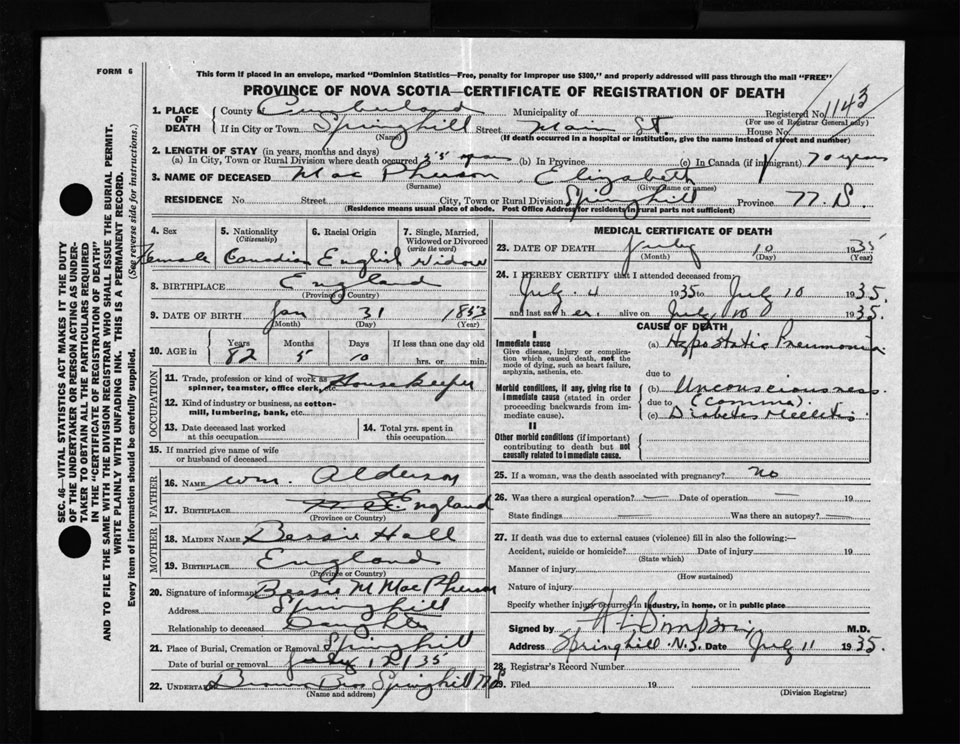 FORM 6
This form if placed in an envelope, marked "Dominion Statistics—Free, penalty for improper use $300," and properly addressed will pass through the mail "FREE"
PROVINCE OF NOVA SCOTIA—CERTIFICATE OF REGISTRATION OF DEATH
1. PLACE OF DEATH
County Cumberland Municipality of Registered No. 1143
(For use of Registrar General only)
If in City or Town Springhill Street Main St. House No.
(Name) (If death occurred in a hospital or institution, give the name instead of street and number)
2. LENGTH OF STAY (in years, months and days)
(a) In City, Town or Rural Division where death occurred 55 years (b) In Province (c) In Canada (if immigrant) 70 years
3. NAME OF DECEASED MacPherson Elizabeth
(Surname) (Given name or names)
RESIDENCE No. Street City, Town or Rural Division Springhill Province N.S.
(Residence means usual place of abode. Post Office Address for residents in rural parts not sufficient)
4. Sex 5. Nationality (Citizenship) 6. Racial Origin 7. Single, Married, Widowed or Divorced (write the word)
Female Canadian English Widow
8. BIRTHPLACE England
(Province or Country)
9. DATE OF BIRTH Jan 31 1853
(Month) (Day) (Year)
10. AGE in Years Months Days If less than one day old
82 5 10 hrs. or min.
OCCUPATION
11. Trade, profession or kind of work as spinner, teamster, office clerk, Housekeeper
12. Kind of industry or business, as cotton-mill, lumbering, bank, etc.
13. Date deceased last worked at this occupation
14. Total yrs. spent in this occupation
15. If married give name of wife or husband of deceased
FATHER
16. NAME Wm. Alderson
17. BIRTHPLACE England
(Province or Country)
MOTHER
18. MAIDEN NAME Bessie Hall
19. BIRTHPLACE England
(Province or Country)
20. Signature of informant Bessie M MacPherson
Address Springhill
Relationship to deceased Daughter
21. Place of Burial, Cremation or Removal Springhill
Date of burial or removal July 12/35
22. UNDERTAKER Brown Bros Springhill N.S.
(Name and address)
MEDICAL CERTIFICATE OF DEATH
23. DATE OF DEATH July 10 1935
(Month) (Day) (Year)
24. I HEREBY CERTIFY that I attended deceased from
July 4 1935 to July 10 1935.
and last saw her alive on July 10 1935.
CAUSE OF DEATH
I
Immediate cause
Give disease, injury or complication which caused death, not the mode of dying, such as heart failure, asphyxia, asthenia, etc.
(a) Hypostatic Pneumonia
due to
Morbid conditions, if any, giving rise to immediate cause (stated in order proceeding backwards from immediate cause).
(b) Unconsciousness
due to (Comma).
(c) Diabetes Mellitis
II
Other morbid conditions (if important) contributing to death but not causally related to immediate cause.
25. If a woman, was the death associated with pregnancy? No
26. Was there a surgical operation? — Date of operation — 19
State findings — Was there an autopsy? —
27. If death was due to external causes (violence) fill in also the following:—
Accident, suicide or homicide? Date of injury 19
(State which)
Manner of injury
(How sustained)
Nature of injury
Specify whether injury occurred in industry, in home, or in public place
Signed by H L Simpson M.D.
Address Springhill N.S. Date July 11 1935.
28. Registrar's Record Number
29. Filed 19
(Division Registrar)
SEC. 46—VITAL STATISTICS ACT MAKES IT THE DUTY
OF THE UNDERTAKER OR PERSON ACTING AS UNDER-
TAKER TO OBTAIN ALL THE PARTICULARS REQUIRED
IN THE "CERTIFICATE OF REGISTRATION OF DEATH"
AND TO FILE THE SAME WITH THE DIVISION REGISTRAR WHO SHALL ISSUE THE BURIAL PERMIT.
WRITE PLAINLY WITH UNFADING INK. THIS IS A PERMANENT RECORD.
Every item of information should be carefully supplied. (See reverse side for instructions.)